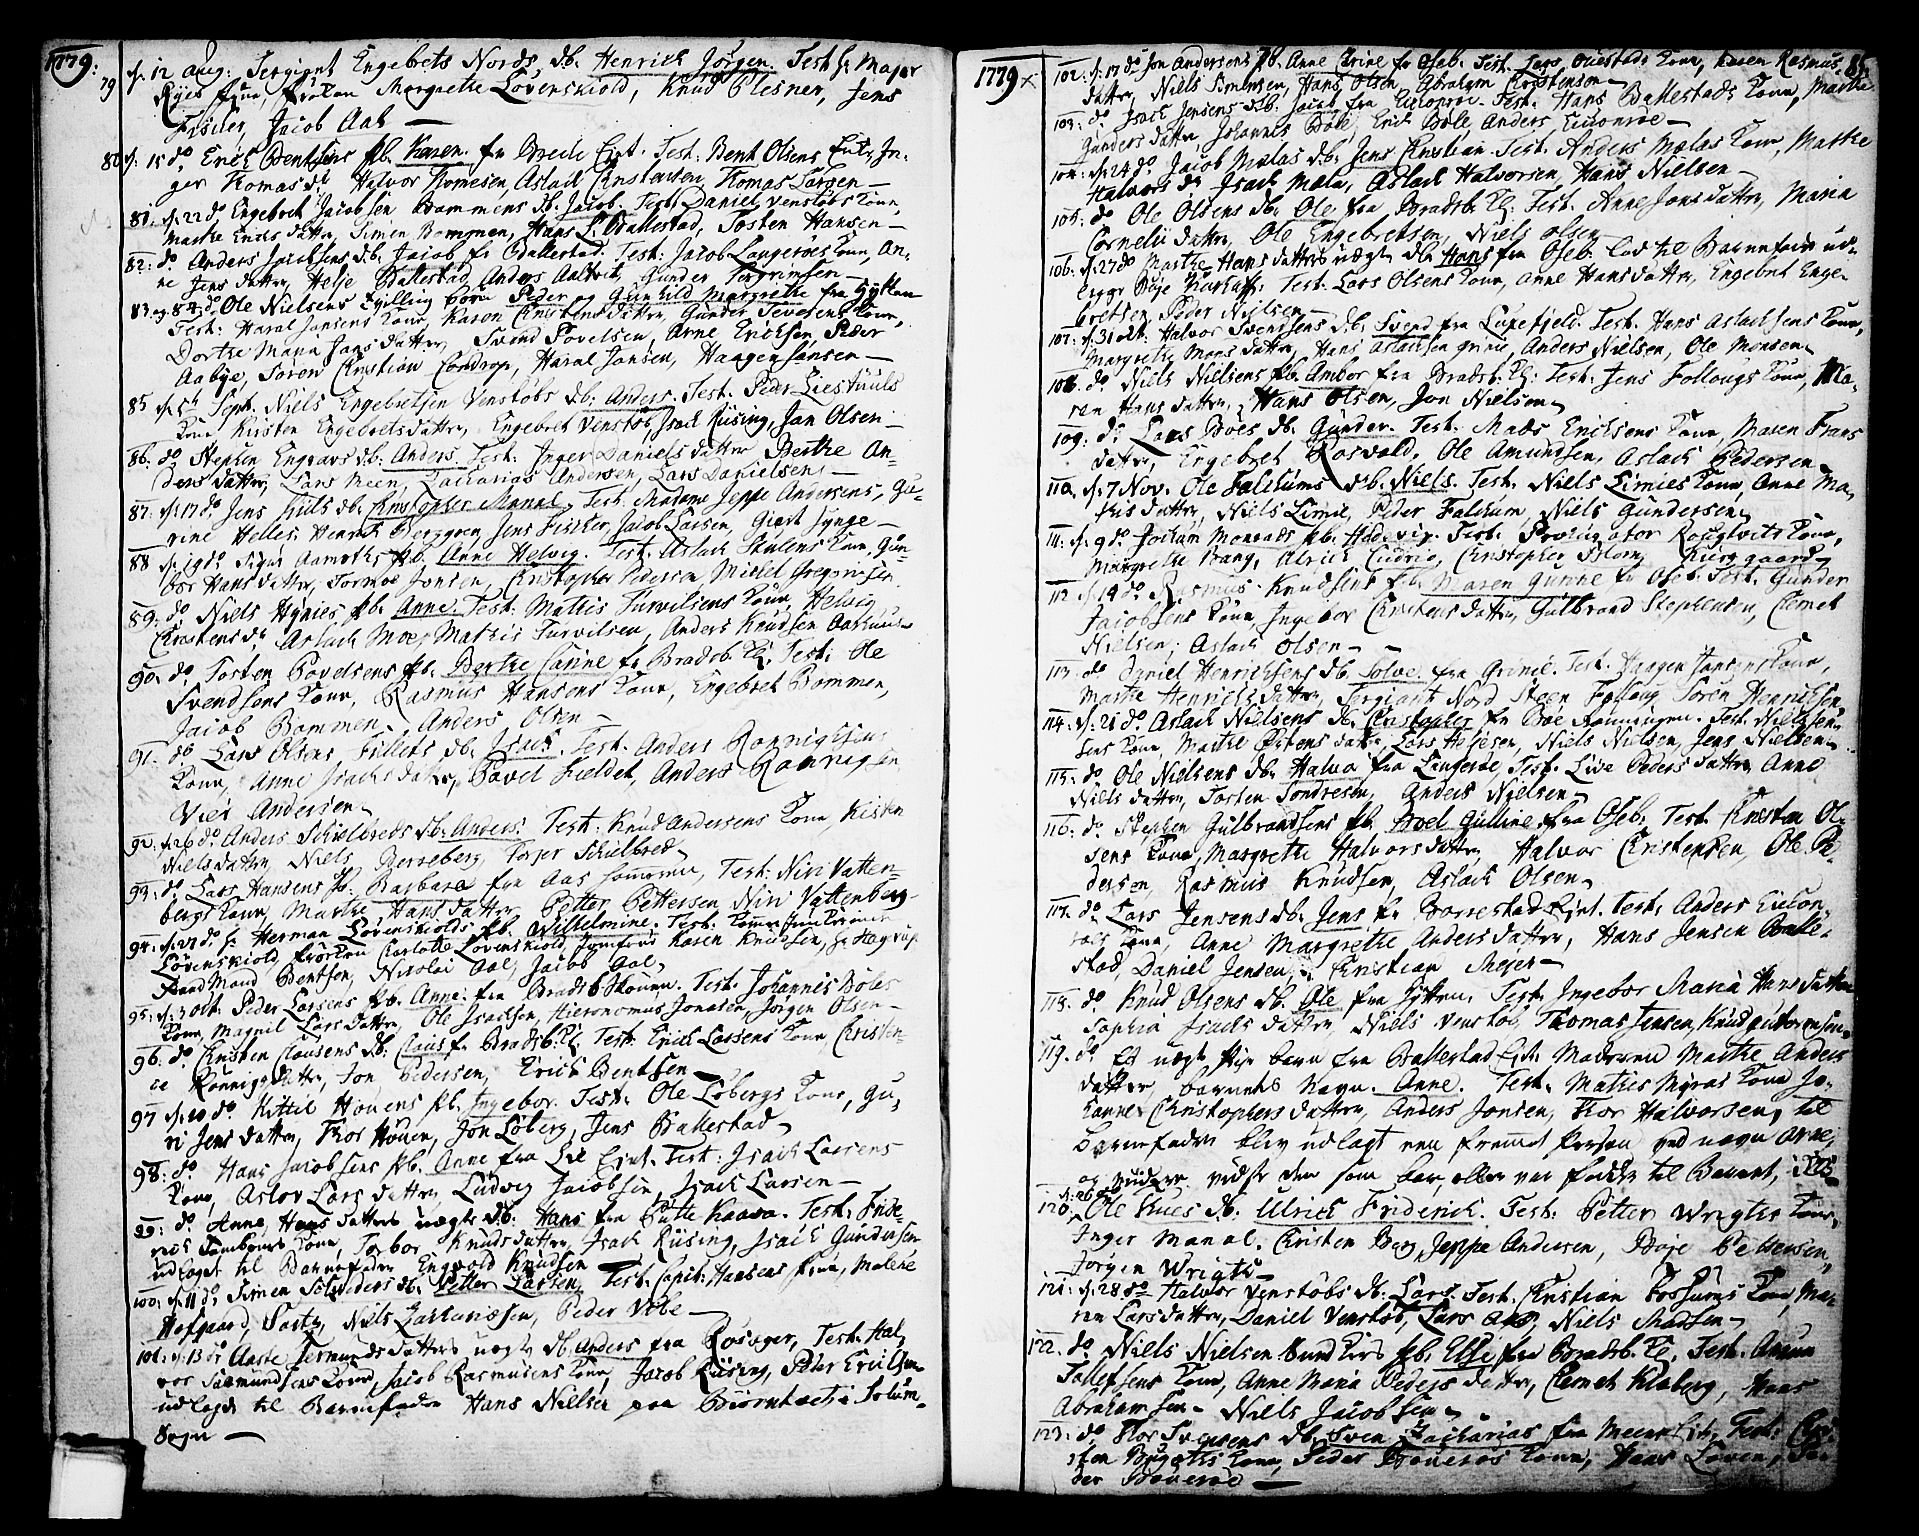 1779:
79 d: 12 Aug: Sergiant Engebets Nords db. Henrich Jörgen. Test: Hr Major
Ryes frue, fröken Margrethe Lövenskiold, Knud Plesner, Jens
Fischer, Jacob Aal —
80 d: 15 do Erich Bentsens pb. Karen. fr Brede Eyt. Test: Bent Olsens Eyt, In-
ger Thomasdr Halvor Thomesen, Aslach Christensen, Thomas Larsen —
81. d: 22 do Engebret Jacobsen Bommens db. Jacob. Test: Daniel Venstöbs Kone,
Marthe Ericks datter, Simen Bommen, Hans L. Ballestad, Tosten Hansen —
82: do Anders Jacobsens db. Jacob fr Ballestad. Test: Jacob Langeröes Kone, An-
ne Jens datter, Helje Ballestad, Anders Aaltvet, Gunder Torgrimsen —
83 og 84 do Ole Nielsens Tvilling börn Peder og Gunhild Margrethe fra Gytten
Test: Haral Jansens Kone, Karen Christens datter, Gunder Tevesens Kone,
Dorthe Maria Jans datter, Svend Povelsen, Arne Erichsen, Peder
Aabye, Sören Christian Controp, Haral Jansen, Haagen Jansen —
85 d: 5te Sept. Niels Engebretsen Venstöbs db: Anders. Test: Peder Liestuuls
Kone, Kirsten Engebretsdatter, Engebret Venstöb, Isach Riising, Jan Olsen —
86: do Stephen Engravs db: Anders. Test: Inger Daniels datter Berthe An-
ders datter, Lars Meen, Zacharias Andersen, Lars Danielsen —
87: d: 17 do Jens Kiils db: Christopher Manal. Test: Madame Jeppe Andersens, Ca-
rine Helles, Henrich Berggren, Jens Fischer, Jacob Larsen, Giert Lynge —
88 d: 19 do Sigur Aamoths pb. Anne Helvig. Test: Aslach Skulens Kone, Gun-
bor Hans datter, Tormoe Jonsen, Christopher Pedersen, Michel Gregorisen
89: do Niels Hynies pb. Anne. Test: Mathis Turvilsens Kone, Helvig
Christens dr Aslach Moe, Mathis Turvilsen, Anders Knudsen Aarhuus
90. do Tosten Povelsens pb. Berthe Carine fr Bradsb. Kl: Test: Ole
Svendsens Kone, Rasmus Hansens Kone, Engebret Bommen,
Jacob Bommen, Anders Olsen —
91. do Lars Olsens Fillets db. Isach. Test. Anders Rönnigsens
Kone, Anne Isachs datter, Povel Fieldet, Anders Rönnigsen
Vier Andersen
92: d: 26 do Anders Skielbreds db: Anders. Test: Knud Andersens Kone, Kisten
Niels datter, Niels Berreberg, Torjer Skielbred
93: do Lars Hansens pb: Barbara fra Aas Eje, Test: Niri Vatten-
bergs Kone, Marthe Hans datter, Petter Pettersen, Niri Vattenberg
94: d: 29 do Hr Herman Lövenskiolds pb. Wilhelmine. Test:
Lövenskiold, fröken Carlotte Lövenskiold, Jomfrue Karen Knudsen, Hr
Mand Bentsen, Nicolai Aal, Jacob Aal
95: d: 3 Oct. Peder Larsens pb. Anne. fra Bradsb. Test. Johannes Böles
Kone, Magnil Lars datter, Ole Isachsen, Hieronomus Jonasen, Jörgen Olsen —
96. do Christen Clausens db: Claus fr Bradsb: Kl: Test: Erich Larsens Kone, Christen-
ce Rönnigs datter, Jon Pedersen, Erich Bentsen
97 d: 10 do Kittil Houens pb. Ingebor. Test: Ole Löbergs Kone, Gu-
ri Jens datter, Thor Houen, Jon Löberg, Jens Ballestad
98: do Hans Jacobsens pb. Anne fra Lie Eyt. Test: Isach Larsens
Kone, Aslov Lars datter, Ludvig Jacobsen, Isach Larsen —
99: do Anne Hans datters uægte db: Hans fra Putte Kaasa. Test. Fride-
rich Kone, Torbor Knuds datter, Isach Riising, Isach Gundersen
udlaget til Barnefader Engvold Knudsen —
100: d: 11 do Simen db: Petter Larsen, Test: Capit: Hansens frue, Malene
Hofgaard, Niels Zachariasen, Peder Vibe —
101. d: 13 do Aaste Sermunds datters uægte db. Anders fra Rösager, Test: Hal-
vor Saamundsens Kone, Jacob Rasmusens Kone, Jacob Riising, Peter Erichsen
udlagdt til Barnefader Hans Nielsen paa Biörntvedt i Solum
Sogn —
1779 85
102: d: 17 do Jon Andersens pb. Anne Trine fr Oseb. Test. Lars Ouestads Kone, Karen Rasmus-
datter, Niels Simensen, Hans Olsen, Abraham Christensen —
103: do Isach Jensens db: Jacob fra Test. Hans Ballestads Kone, Marthe
Gunders datter, Johannes Böle, Erich Böle, Anders —
104: d: 24 do Jacob Mælas db: Jens Christian. Test: Anders Mælas Kone, Marthe
Halvors dr Isach Mæla, Aslach Halvorsen, Hans Nielsen —
105: do Ole Olsens db. Ole fra Bradsb. Kl: Test: Anne Jons datter, Maria
Cornelii datter, Ole Engebretsen, Niels Olsen —
106: d: 27 do Marthe Hans datters uægte db. Hans fra Oseb. lod til Barnefader ud-
legge Böje. Test: Lars Olsens Kone, Anne Hans datter, Engebret Enge-
bretsen, Peder Nielsen —
107: d: 31 Oct: Halvor Svendsens db. Svend fra Luxefjeld. Test. Hans Aslachsens Kone,
Margrethe Mons datter, Hans Aslachsen Grinie, Anders Nielsen, Ole Monsen
108. do Niels Nielsens pb. Ambor fra Bradsb. Kl: Test: Jens Follougs Kone, Ma-
ren Hans datter, Hans Olsen, Jon Nielsen
109: do Lars Boes db. Gunder. Test: Mads Erichsens Kone, Maren Frans
datter, Engebret Rosvold, Ole Amundsen, Aslach Pedersen
110. d: 7 Nov. Ole Falchums db. Niels. Test: Niels Limies Kone, Anne Ma-
this datter, Niels Limie, Peder Falchum, Niels Gundersen
111. d: 9 do Jocham Monrads pb. Hedevig. Test: Procurator Rougtvets Kone,
Margrethe Bang, Ulrich Cudrio, Christopher Blom, Kurggaard
112. d: 14 do Rasmus Knudsens pb. Maren Gunne fr Oseb. Test. Gunder
Jacobsens Kone, Ingebor Christens datter, Gulbrand Stephensen, Clemet
Nielsen, Aslach Olsen —
113. do Daniel Henrichsens db. Tolve fra Grinie. Test. Haagen Jansens Kone,
Marthe Henrichs datter, Sergiant Nord, Steen Folloug, Sören Henrichsen
114. d: 21 do Aslach Nielsens db. Christopher fr Boe Rönningen. Test. Niels Jen-
sens Kone, Marthe Östens datter, Lars Heljesen, Niels Nielsen, Jens Nielsen
115. do Ole Nielsens db. Halvo fra Langeröe, Test. Live Peders datter, Anne
Niels datter, Tosten Tondresen, Anders Nielsen
116: do Stephen Gulbrandsens pb. Boel Gulline fra Oseb. Test. Christen Ol-
sens Kone, Margrethe Halvors datter, Halvor Christensen, Ole Pe-
dersen, Rasmus Knudsen, Aslach Olsen
117. do Lars Jensens db. Jens fr Borrestad Eyt. Test: Anders
Kone, Anne Margrethe Anders datter, Hans Jensen Balle-
stad, Daniel Jensen, Christian Mejer —
118. do Knud Olsens db. Ole fra Gytten, Test. Ingebor Maria Hans datter
Sophia Isachs datter, Niels Venstöb, Thomas Jensen, Knud Guttormsen
119. do Et uægte Pige barn fra Ballestad Eyt. Moderen Marthe Anders
datter, barnets Navn. Anne. Test. Mathis Myras Kone Jo-
hanne Christophers datter, Anders Jonsen, Thor Halvorsen, til
barnefader blev udlagt een fremmet Person ved navn Arne,
og vidste den som bar, eller var fadder til Barnet,
120. d: 26 do Ole Kues db. Ulrich Friderich. Test: Petter Wrigtes Kone,
Inger Manal, Christen Berg, Jeppe Andersen, Böje Pettersen,
Jörgen Wrigth —
121. d: 28 do Halvor Venstöbs db. Lars. Test. Christian Fossums Kone, Ma-
ren Lars datter, Daniel Venstöb, Lars Aas, Niels Madsen
122. do Niels Nielsen Sundkirs pb. Else fra Bradsb. Kl. Test. Amun
Tollefsens Kone, Anne Maria Peders datter, Clemet Klaberg, Hans
Abrahamsen, Niels Jacobsen
123. do Thor Svensens db. Sven Zacharias fra Meen Eyt. Test: Chri-
sten Bugates Kone, Peder Boueröes Kone, Hans Loven, Pe-
der Boueröe —